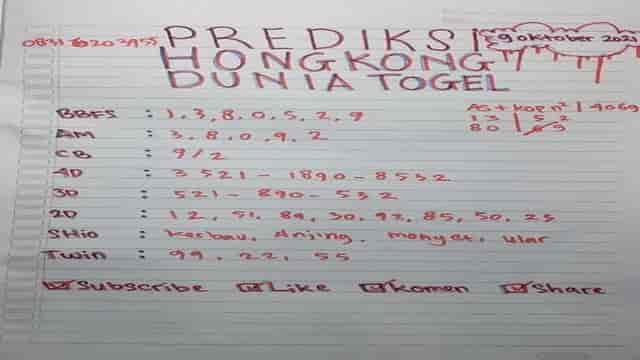 PREDIKSI
9 oktober 2021
HONGKONG
DUNIA TOGEL
AS + KOP n² | 4060
13 | 52
80 | 69
BBFS : 1, 3, 8, 0, 5, 2, 9
AM : 3, 8, 0, 9, 2
CB : 9/2
4D : 3521 - 1890 - 8532
3D : 521 - 890 - 532
2D : 12, 51, 89, 30, 92, 85, 50, 25
SHio : kerbau, Anjing, monyet, ular
Twin : 99, 22, 55
Subscribe Like Komen Share